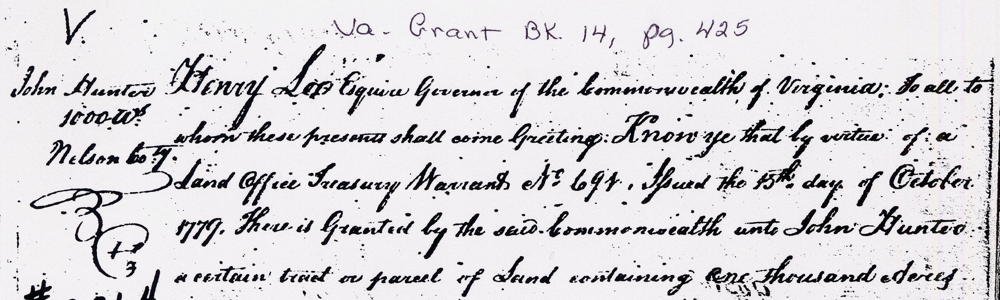 V.
Va. Grant BK. 14, pg. 425
John Hunter
1000 ac's
Nelson Co ty.
Henry Lee Esquire Governor of the Commonwealth of Virginia: To all to
whom these presents shall come Greeting: Know ye that by virtue of a
Land Office Treasury Warrant No 691. Issued the 15th day of October
1779. There is Granted by the said Commonwealth unto John Hunter
a certain tract or parcel of Land containing One thousand Acres